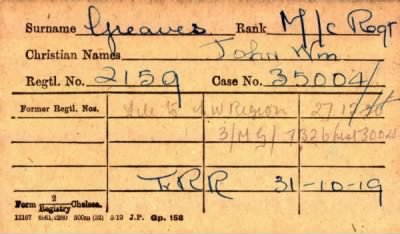 Surname Greaves Rank M/c Regt
Christian Names John Wm
Regtl. No. 2159 Case No. 35004/
Former Regtl. Nos. File to N W Region 27.12.
3/MG/
F.R.R 31-10-19
Form 2/Registry Chelsea.
12167 500m (32) 5/19 J.P. Gp. 158